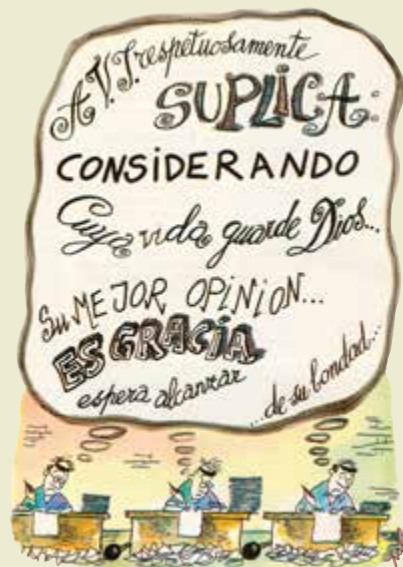 A V.I. respetuosamente
SUPLICA:
CONSiDERANDO
Cuya vida guarde Dios...
Su MEJOR OPiNiON...
ES GRACIA
espera alcanzar
...de su bondad...